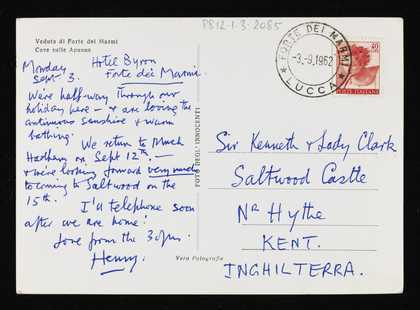 8812-1-3-2085
Veduta di Forte dei Marmi
Cave sulle Apuane
Monday
Sept 3.
Hotel Byron
Forte dei Marmi.
We're half-way through our
holiday here – & are loving the
continuous sunshine & warm
bathing.
We return to Much
Hadham on Sept 12th –
& we're looking forward very much
to coming to Saltwood on the
15th.
I'll telephone soon
after we are home!
Love from the 3 of us.
Henry.
FOTO DEGL' INNOCENTI
Vera Fotografia
FORTE DEI MARMI
-3.-9.1962
LUCCA
POSTE ITALIANE
Sir Kenneth & Lady Clark
Saltwood Castle
Nr Hythe
KENT.
INGHILTERRA.